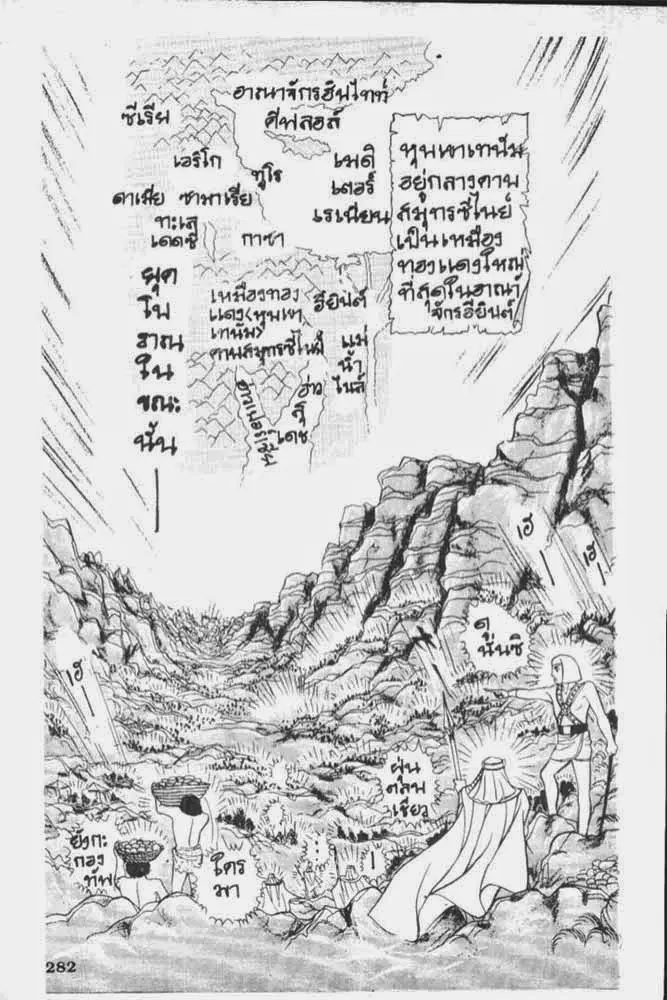 อาณาจักรฮินไทท์
ซีเรีย
ศีฟลอส์
เอริโก
ทูโร
เมดิ
เตอร์
เรเนียน
ดาเมีย ซามาเรีย
ทะเล
เดดซี
กาซา
หุบเขาเทนัม
อยู่กลางคาบ
สมุทรซีไนย์
เป็นเหมือง
ทองแดงใหญ่
ที่สุดในอาณา
จักรอียิบต์
ยุค
โบ
ราณ
ใน
ขณะ
นั้น
เหมืองทอง
แดง(หุบเขา
เทนัม)
คาบสมุทรซีไนย์
อียิบต์
แม่
น้ำ
ไนล์
อ่าว
เดซ
เฮ้
เฮ้
ดู
นั่นซิ
เฮ้
ฝุ่น
ตลบ
เชียว
ยังกะ
กอง
ทัพ
ใคร
มา
...
!
282